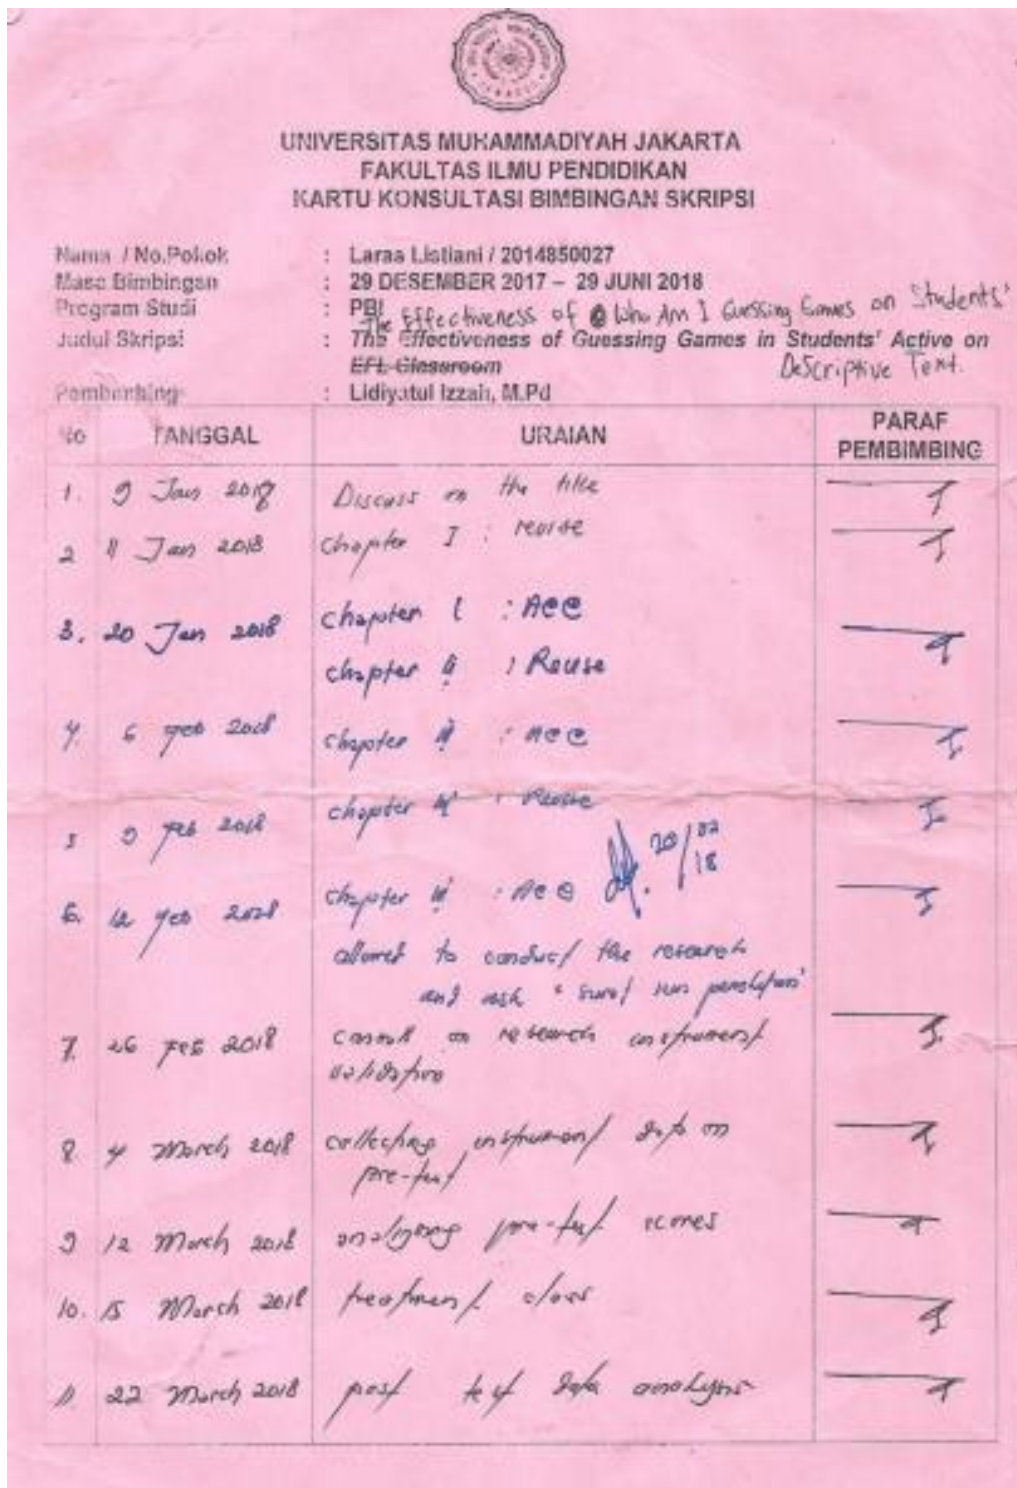 UNIVERSITAS MUHAMMADIYAH JAKARTA
FAKULTAS ILMU PENDIDIKAN
KARTU KONSULTASI BIMBINGAN SKRIPSI
Nama / No.Pokok : Laras Listiani / 2014850027
Masa Bimbingan : 29 DESEMBER 2017 – 29 JUNI 2018
Program Studi : PBI
The Effectiveness of Who Am I Guessing Games on Students'
Judul Skripsi : The Effectiveness of Guessing Games in Students' Active on
EFL Classroom Descriptive Text.
Pembimbing : Lidiyatul Izzah, M.Pd
No TANGGAL URAIAN PARAF PEMBIMBING
1. 9 Jan 2018 Discuss on the title
2 11 Jan 2018 Chapter I : revise
3. 20 Jan 2018 chapter I : Acc
chapter II : Revise
4. 6 Feb 2018 chapter II : Acc
5 9 Feb 2018 chapter III : Revise
20/02/18
6. 12 Feb 2018 chapter III : Acc
allowed to conduct the research
and ask "surat izin penelitian"
7. 26 Feb 2018 consult on research instrument
validation
8 4 March 2018 collecting instrument data on
pre-test
9 12 March 2018 analyzing pre-test scores
10. 15 March 2018 treatment class
11. 22 March 2018 post test data analysis